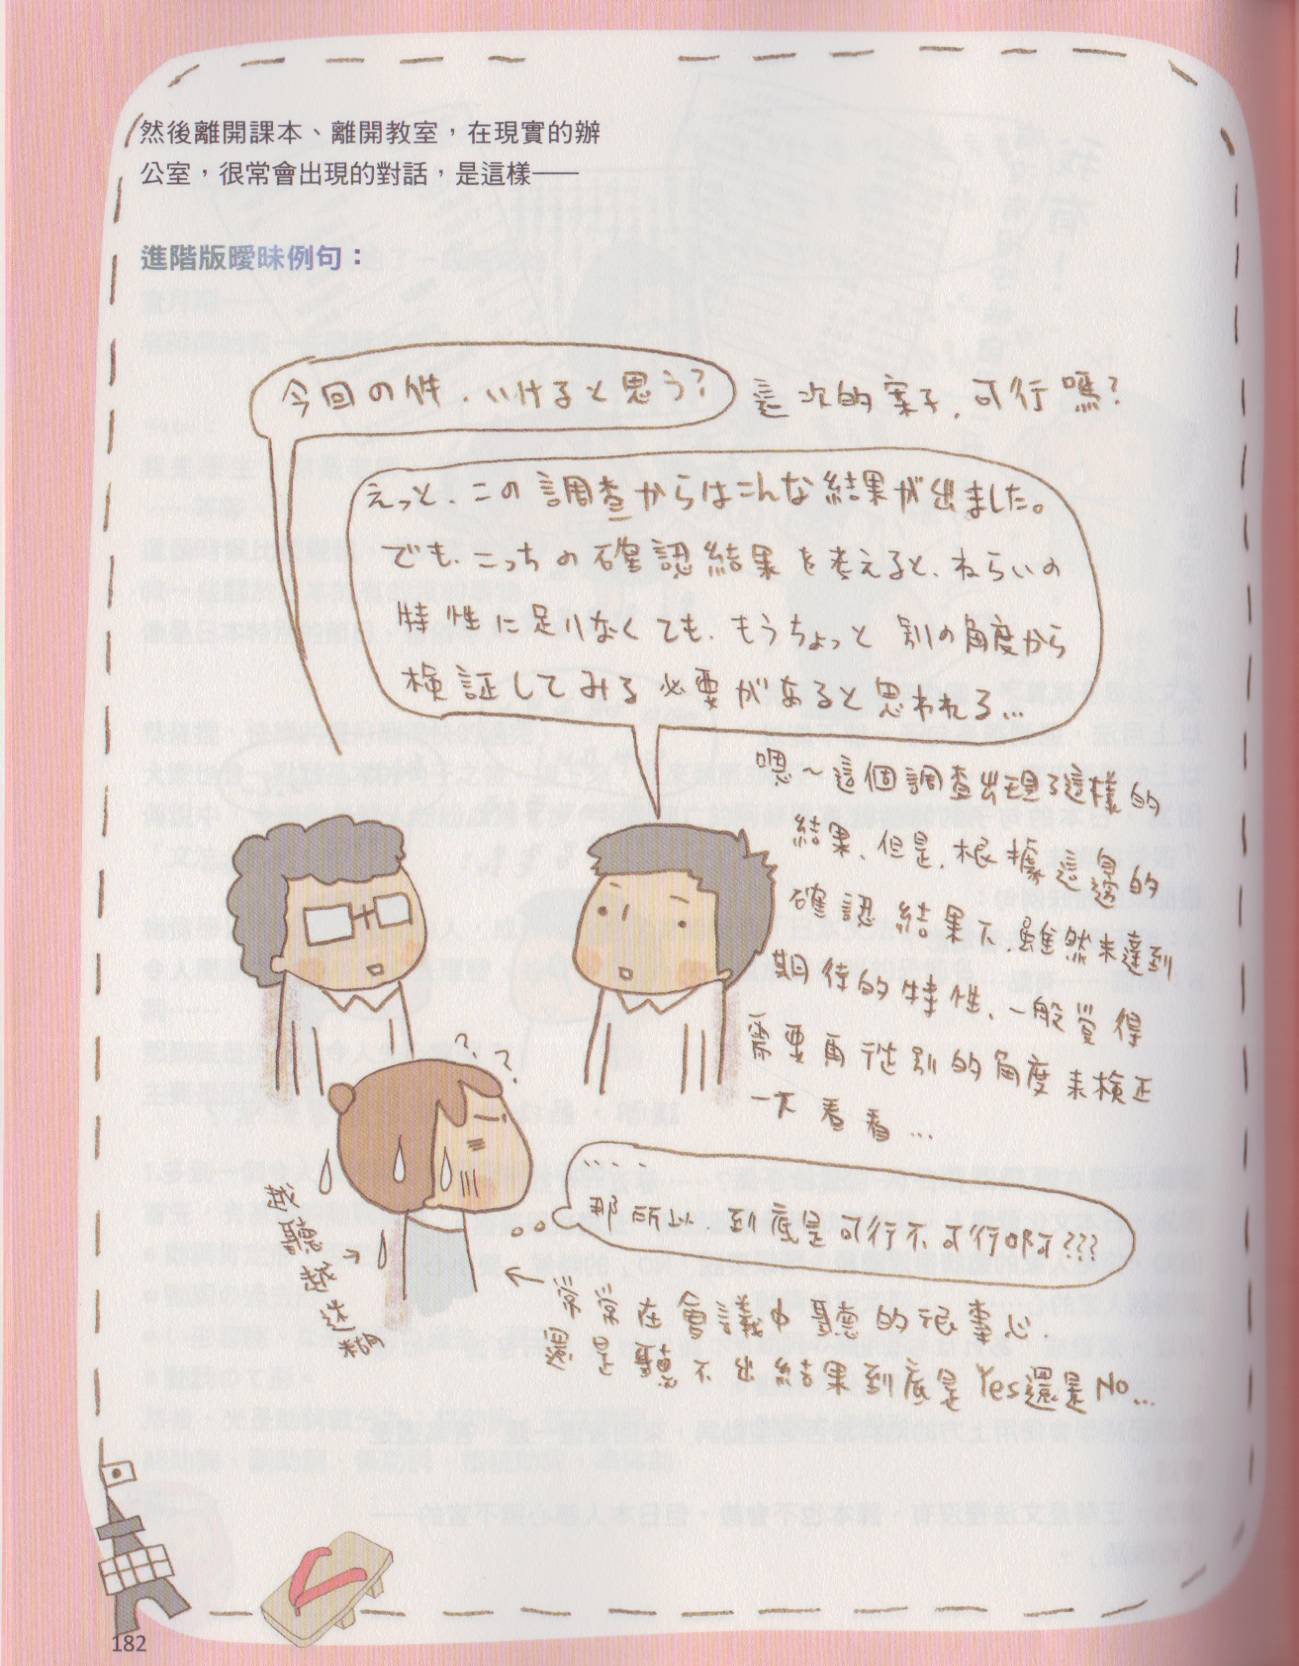 然後離開課本、離開教室，在現實的辦
公室，很常會出現的對話，是這樣——
進階版曖昧例句：
今回の件、いけると思う？
這次的案子，可行嗎？
えっと、この調査からはこんな結果が出ました。
でも、こっちの確認結果を考えると、ねらいの
特性に足りなくても、もうちょっと別の角度から
検証してみる必要があると思われる…
嗯～這個調查出現了這樣的
結果、但是、根據這邊的
確認結果下、雖然未達到
期待的特性、一般覺得
需要再從別的角度來檢正
一下看看…
?.?.?
越聽越迷糊
....
那所以、到底是可行不可行啊???
常常在會議中聽的很專心、
還是聽不出結果到底是Yes還是No…
182